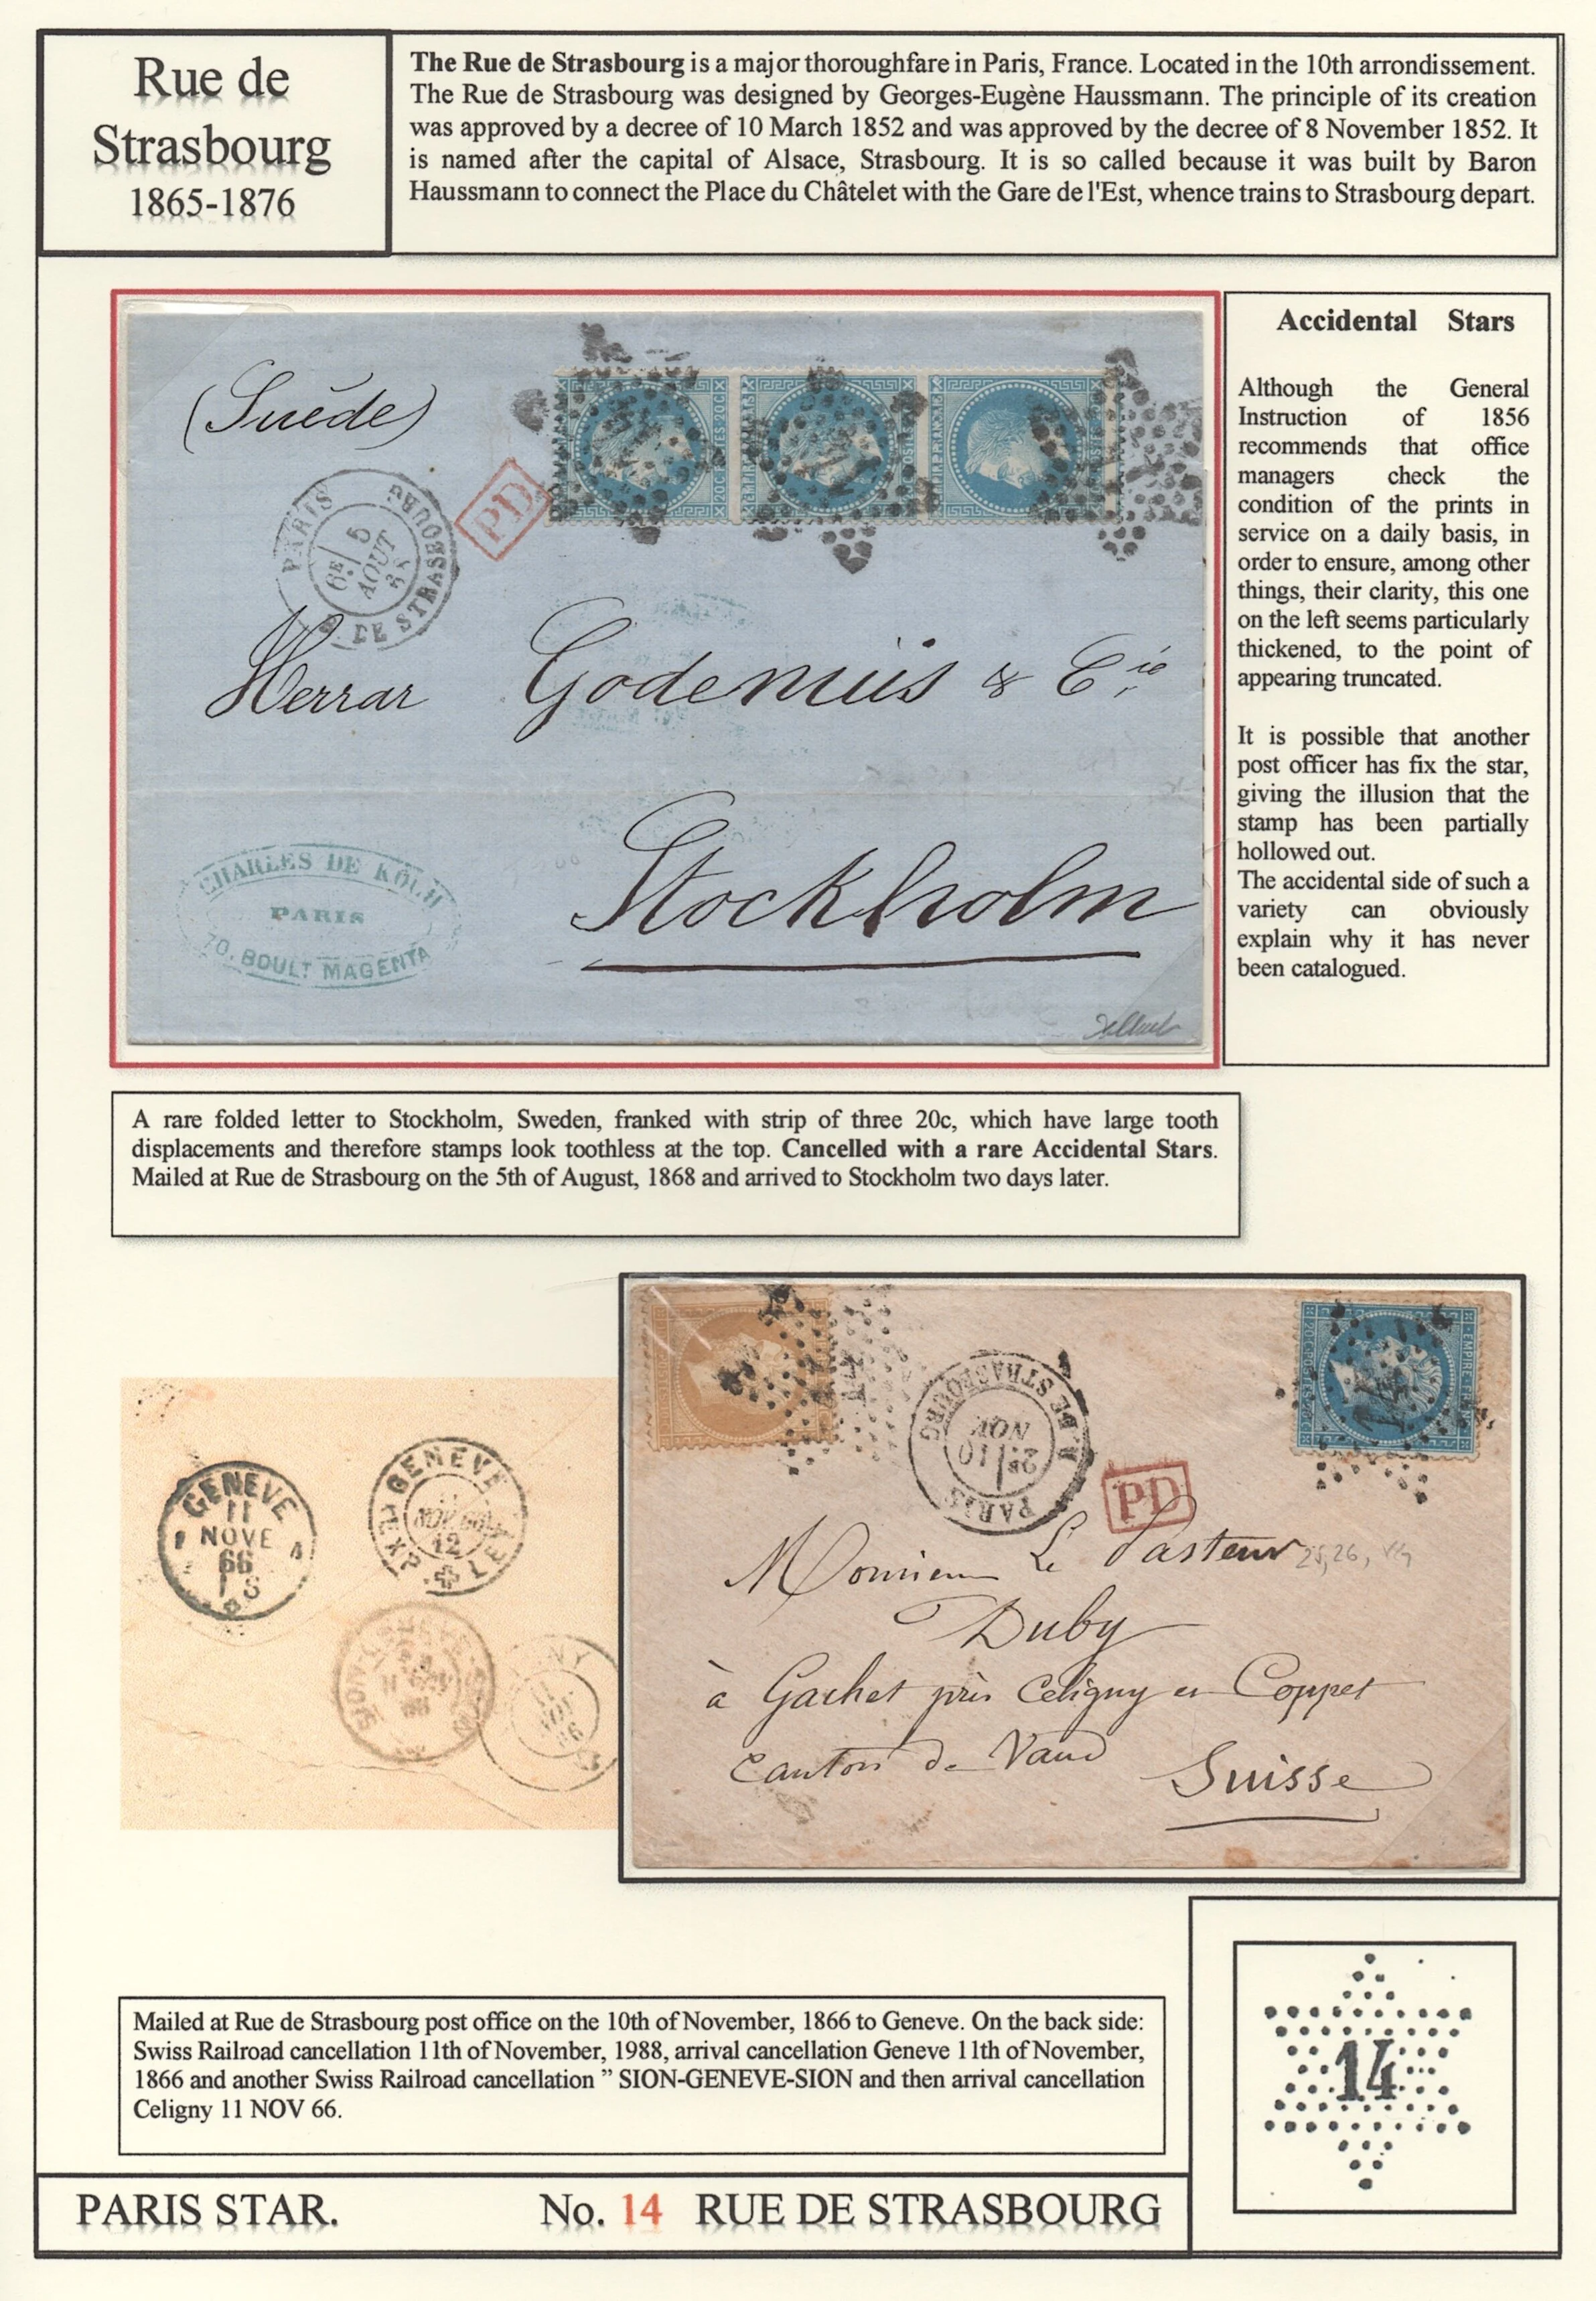 Rue de
Strasbourg
1865-1876
The Rue de Strasbourg is a major thoroughfare in Paris, France. Located in the 10th arrondissement.
The Rue de Strasbourg was designed by Georges-Eugène Haussmann. The principle of its creation
was approved by a decree of 10 March 1852 and was approved by the decree of 8 November 1852. It
is named after the capital of Alsace, Strasbourg. It is so called because it was built by Baron
Haussmann to connect the Place du Châtelet with the Gare de l'Est, whence trains to Strasbourg depart.
(Suède)
PD
PARIS
R. DE STRASBOURG
6E 5
AOUT
68
Herrar Godenius & Cie
Stockholm
CHARLES DE KOCH
PARIS
70, BOULT MAGENTA
Accidental Stars
Although the General
Instruction of 1856
recommends that office
managers check the
condition of the prints in
service on a daily basis, in
order to ensure, among other
things, their clarity, this one
on the left seems particularly
thickened, to the point of
appearing truncated.
It is possible that another
post officer has fix the star,
giving the illusion that the
stamp has been partially
hollowed out.
The accidental side of such a
variety can obviously
explain why it has never
been catalogued.
A rare folded letter to Stockholm, Sweden, franked with strip of three 20c, which have large tooth
displacements and therefore stamps look toothless at the top. Cancelled with a rare Accidental Stars.
Mailed at Rue de Strasbourg on the 5th of August, 1868 and arrived to Stockholm two days later.
GENEVE
11
NOVE
66
GENEVE
NOV 66
12
EXP. LET.
14
PARIS
R. DE STRASBOURG
2E 10
NOV
PD
Monsieur Le Pasteur
Duby
à Gachet près Céligny et Coppet
Canton de Vaud
Suisse
Mailed at Rue de Strasbourg post office on the 10th of November, 1866 to Geneve. On the back side:
Swiss Railroad cancellation 11th of November, 1988, arrival cancellation Geneve 11th of November,
1866 and another Swiss Railroad cancellation ” SION-GENEVE-SION and then arrival cancellation
Celigny 11 NOV 66.
14
PARIS STAR. No. 14 RUE DE STRASBOURG